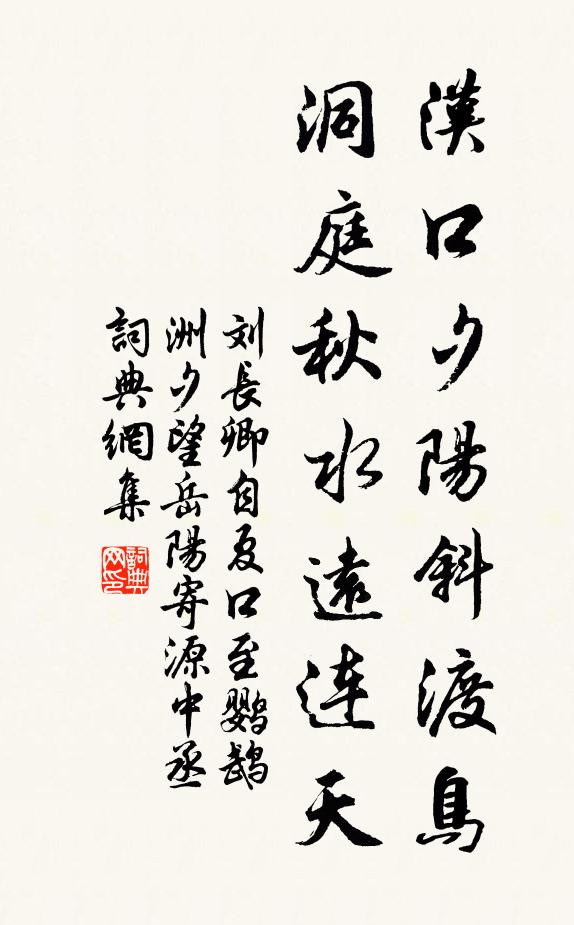 漢口夕陽斜渡鳥
洞庭秋水遠連天
刘長卿自夏口至鹦鹉
洲夕望岳陽寄源中丞
詞典網集
詞典
网印